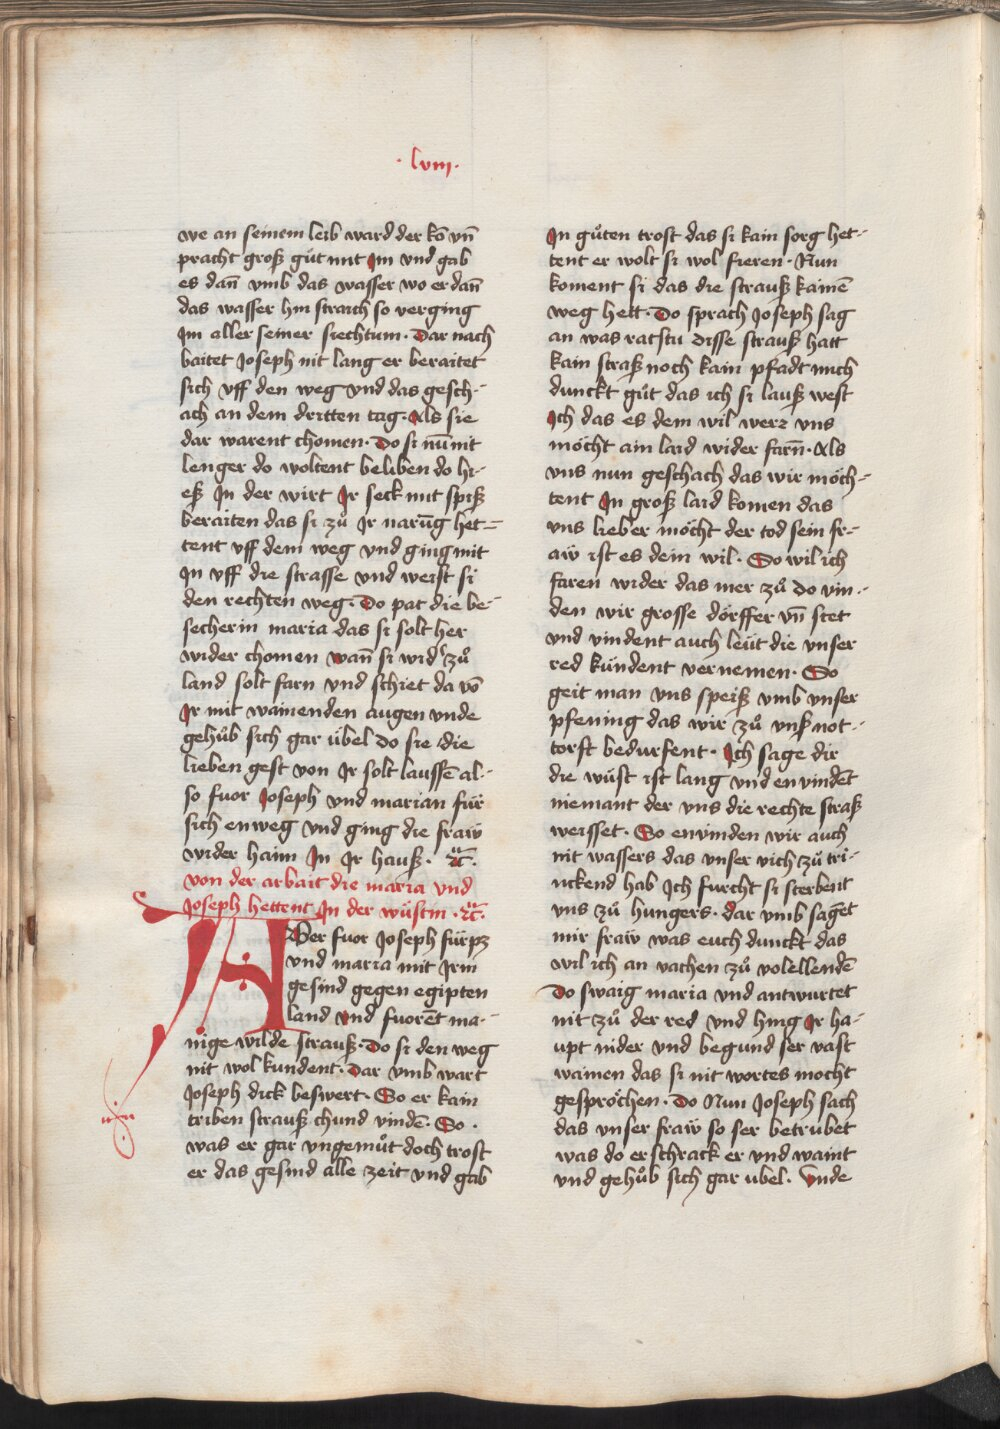 · lviij ·
we an seinem leib ward der kō vn̄
pracht groß gůt mit Jm vnd gab
es dan̄ vmb das wasser wo er dan̄
das wasser hin straich so verging
Jm aller seiner siechtum · Dar nach
baitet Joseph nit lang er beraitet
sich vff den weg vnd das gesch-
ach an dem dritten tag · Als sie
dar warent chomen · Do si nū nit
lenger do woltent beliben do hi-
eß Jn der wirt Jr seck mit spiß
beraiten das si zů Jr narūg het-
tent vff dem weg vnd ging mit
Jn vff die strasse vnd weist si
den rechten weg · Do pat die be-
secherin maria das si solt her
wider chomen wan̄ si wid' zů
land solt farn vnd schiet da vō
Jr mit wainenden augen vnde
gehůb sich gar übel do sie die
lieben gest von Jr solt laussē al-
so fuor Joseph vnd marian für
sich enweg vnd ging die fraw
wider haim Jn Jr hauß · ꝛc̄ ·
von der arbait die maria vnd
Joseph hettent Jn der wůstin · ꝛc̄ ·
ABer fuor Joseph fürpz
vnd maria mit Jrm
gesind gegen egipten
land vnd fuorēt ma-
nige wilde strauß · Do si den weg
nit wol kundent · Dar vmb wart
Joseph dick beswert · So er kain
triben strauß chund vindē · So ·
was er gar vngemůt doch trost
er das gesind alle zeit vnd gab
Jn gůten trost das si kain sorg het-
tent er wolt si wol fieren · Nun
koment si das die strauß kainē
weg hett · Do sprach Joseph sag
an was ratstu disse strauß hatt
kain straß noch kain pfadt mich
dunckt gůt das ich si lauß west
Jch das es dem wil werz vns
möcht ain laid wider farn̄ · Als
vns nun geschach das wir möch-
tent Jn groß laid komen das
vns lieber möcht der tod sein fr-
aw ist es dein wil · So wil ich
faren wider das mer zů do vin-
den wir grosse dörffer vn̄ stet
vnd vindent auch leüt die vnser
red kündent vernemen · So
geit man vns speiß vmb vnser
pfening das wir zů vnß not-
torft bedurfent · Jch sage dir
die wüst ist lang vnd envindēt
niemant der vns die rechte straß
weisset · So envinden wir auch
nit wassers das vnser vich zů tri-
nckend hab Jch furcht si sterbent
vns zů hungers · dar vmb sagēt
mir fraw was euch dunckt das
wil ich an vachen zů volellendē
Do swaig maria vnd antwurtet
nit zů der red vnd hing Jr ha-
upt nider vnd begund ser vast
wainen das si nit wortes mocht
gesprochen · Do Nun Joseph sach
das vnser fraw so ser betrubet
was do erschrack er vnd waint
vnd gehůb sich gar ubel · Vnde